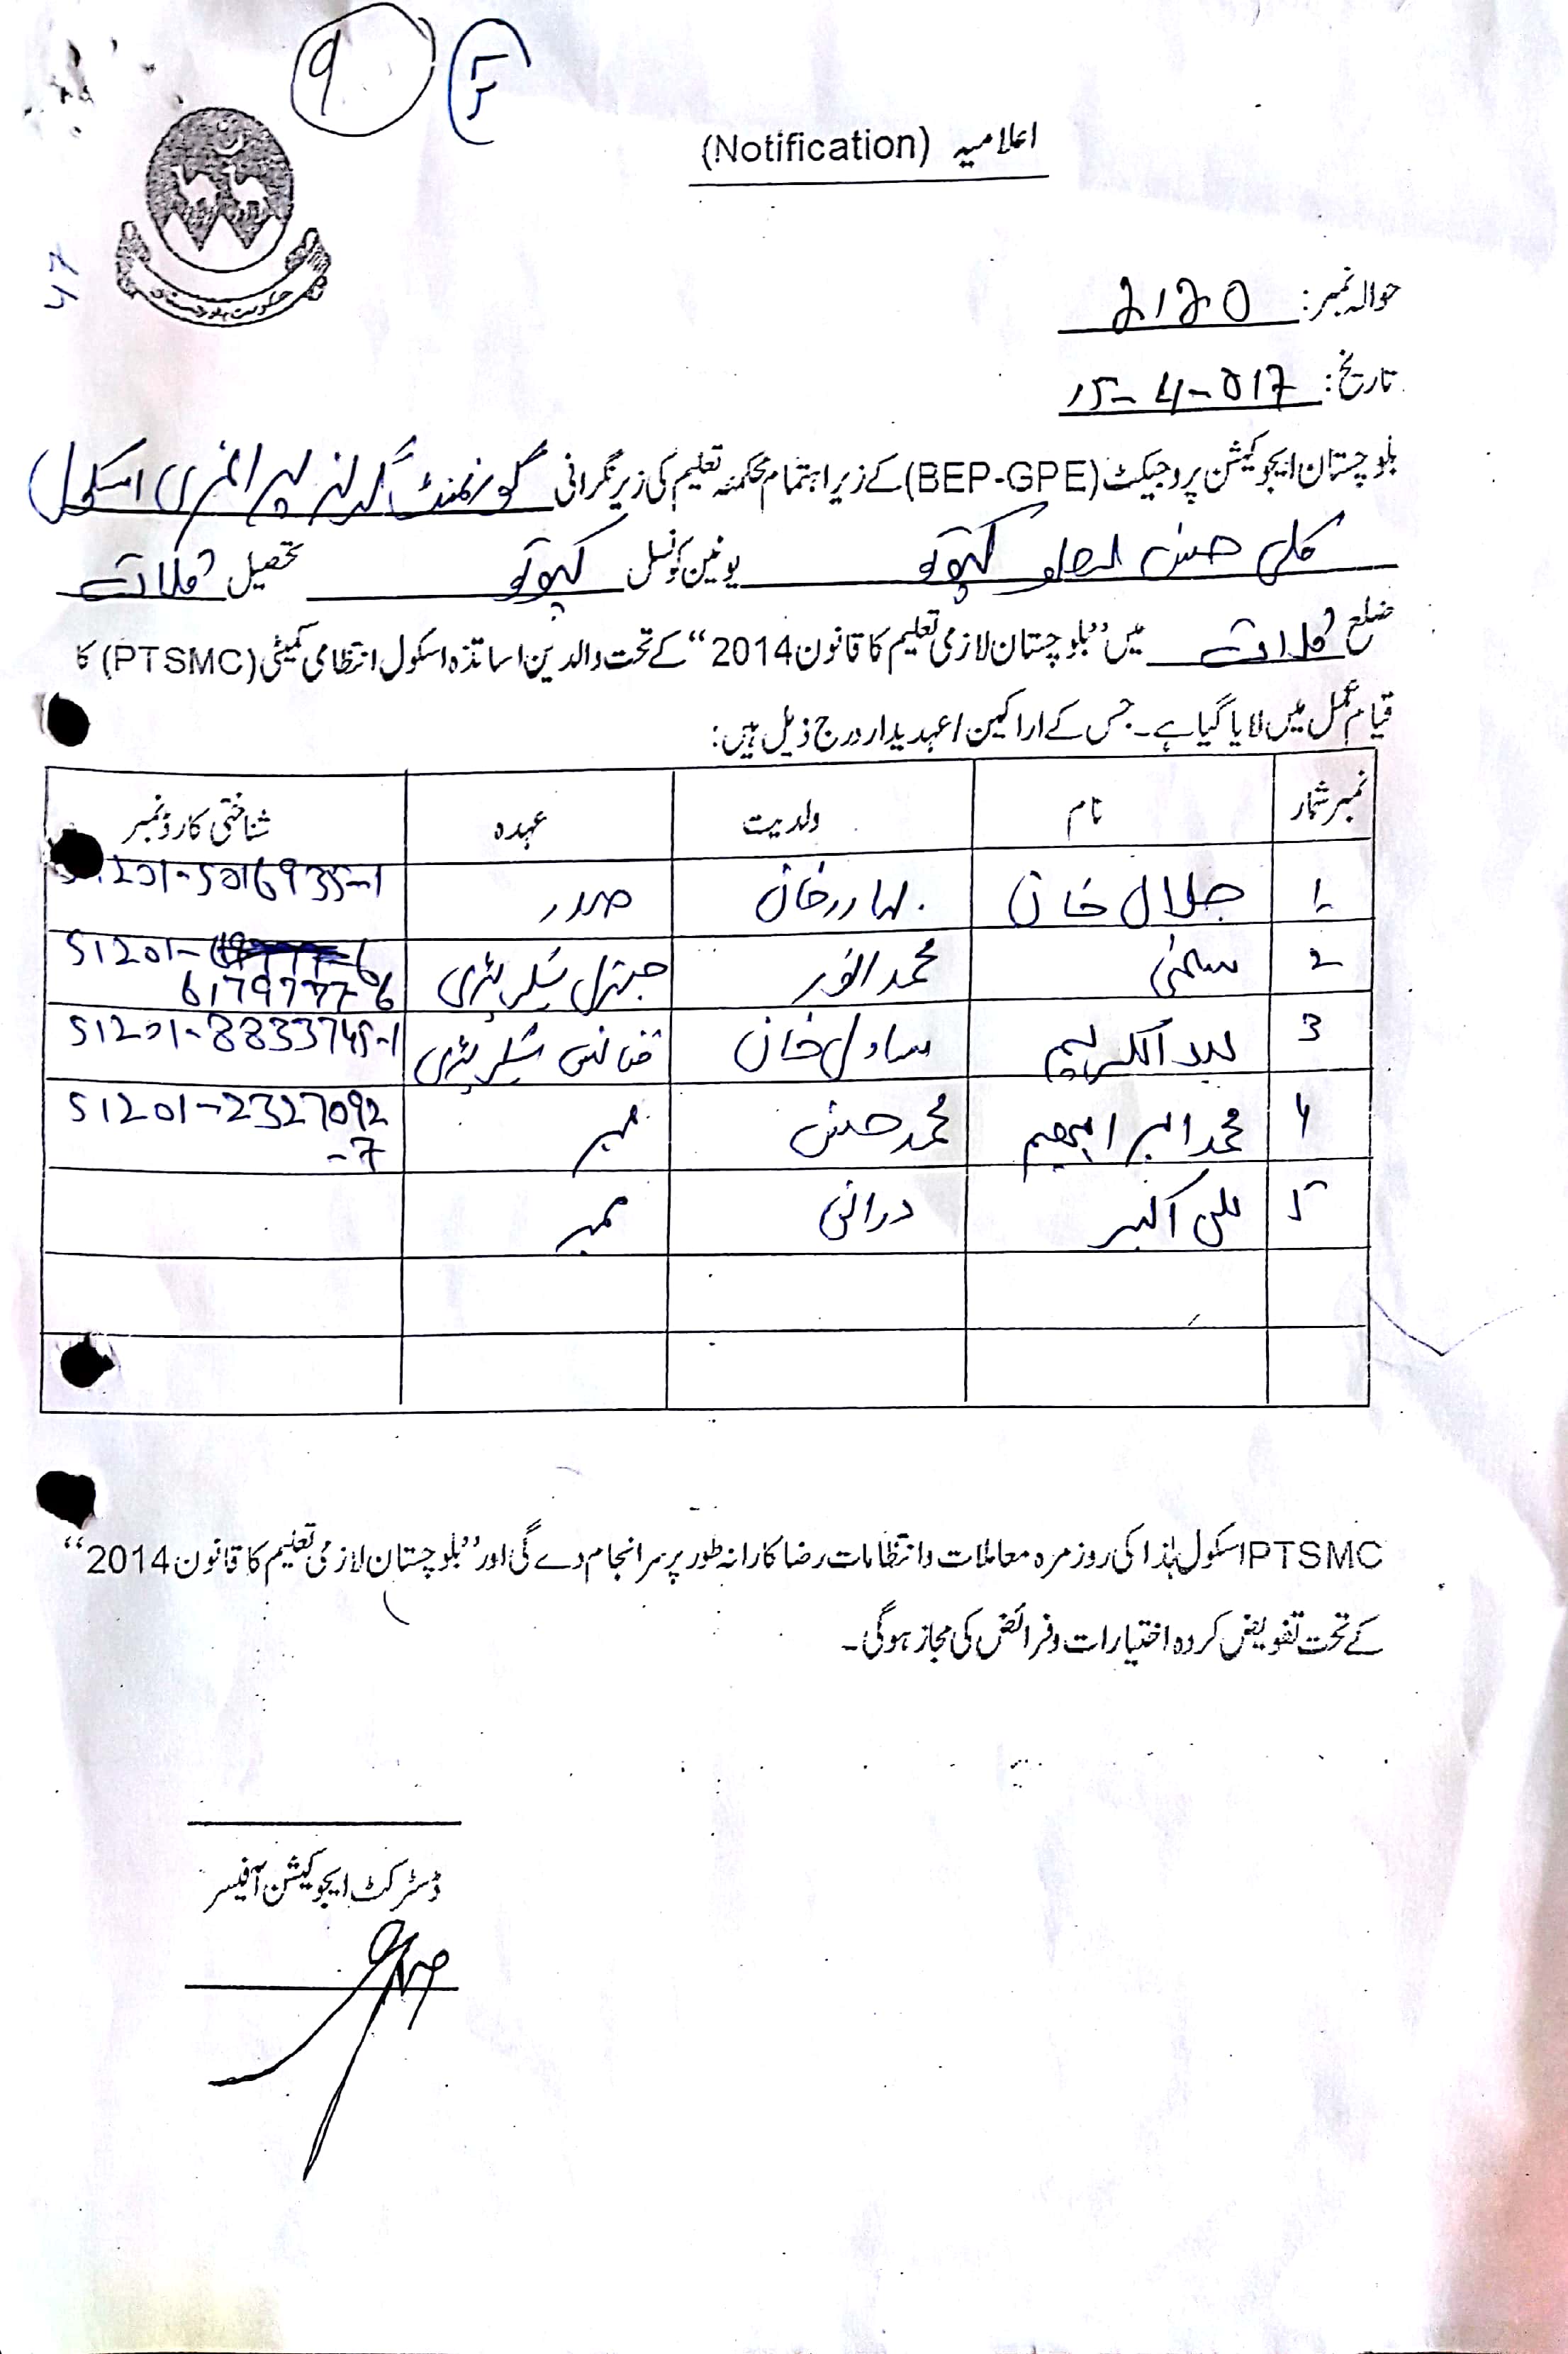 9 5
اعلامیہ (Notification)
حکومت بلوچستان
47
حوالہ نمبر: 2120
تاریخ: 15-4-017
بلوچستان ایجوکیشن پروجیکٹ (BEP-GPE) کے زیر اہتمام محکمہ تعلیم کی زیر نگرانی گورنمنٹ گرلز پرائمری اسکول
کلی حسن کپوتو یونین کونسل کپوتو تحصیل قلات
ضلع قلات میں ”بلوچستان لازمی تعلیم کا قانون 2014“ کے تحت والدین اساتذہ اسکول انتظامی کمیٹی (PTSMC) کا
قیام عمل میں لایا گیا ہے۔ جس کے اراکین / عہدیدار درج ذیل ہیں:
نمبر شمار نام ولدیت عہدہ شناختی کارڈ نمبر
1 جلال خان بہادر خان صدر 51201-5016935-1
2 سلمیٰ محمد انور جنرل سیکریٹری 51201-
6179777-6
3 عبدالکریم ساول خان فنانس سیکریٹری 51201-8833745-1
4 محمد ابراھیم محمد حسن ممبر 51201-2327092
-7
5 علی اکبر درانی ممبر
PTSMC اسکول ہٰذا کی روز مرہ معاملات و انتظامات رضا کارانہ طور پر سر انجام دے گی اور ”بلوچستان لازمی تعلیم کا قانون 2014“
کے تحت تفویض کردہ اختیارات و فرائض کی مجاز ہوگی۔
ڈسٹرکٹ ایجوکیشن آفیسر